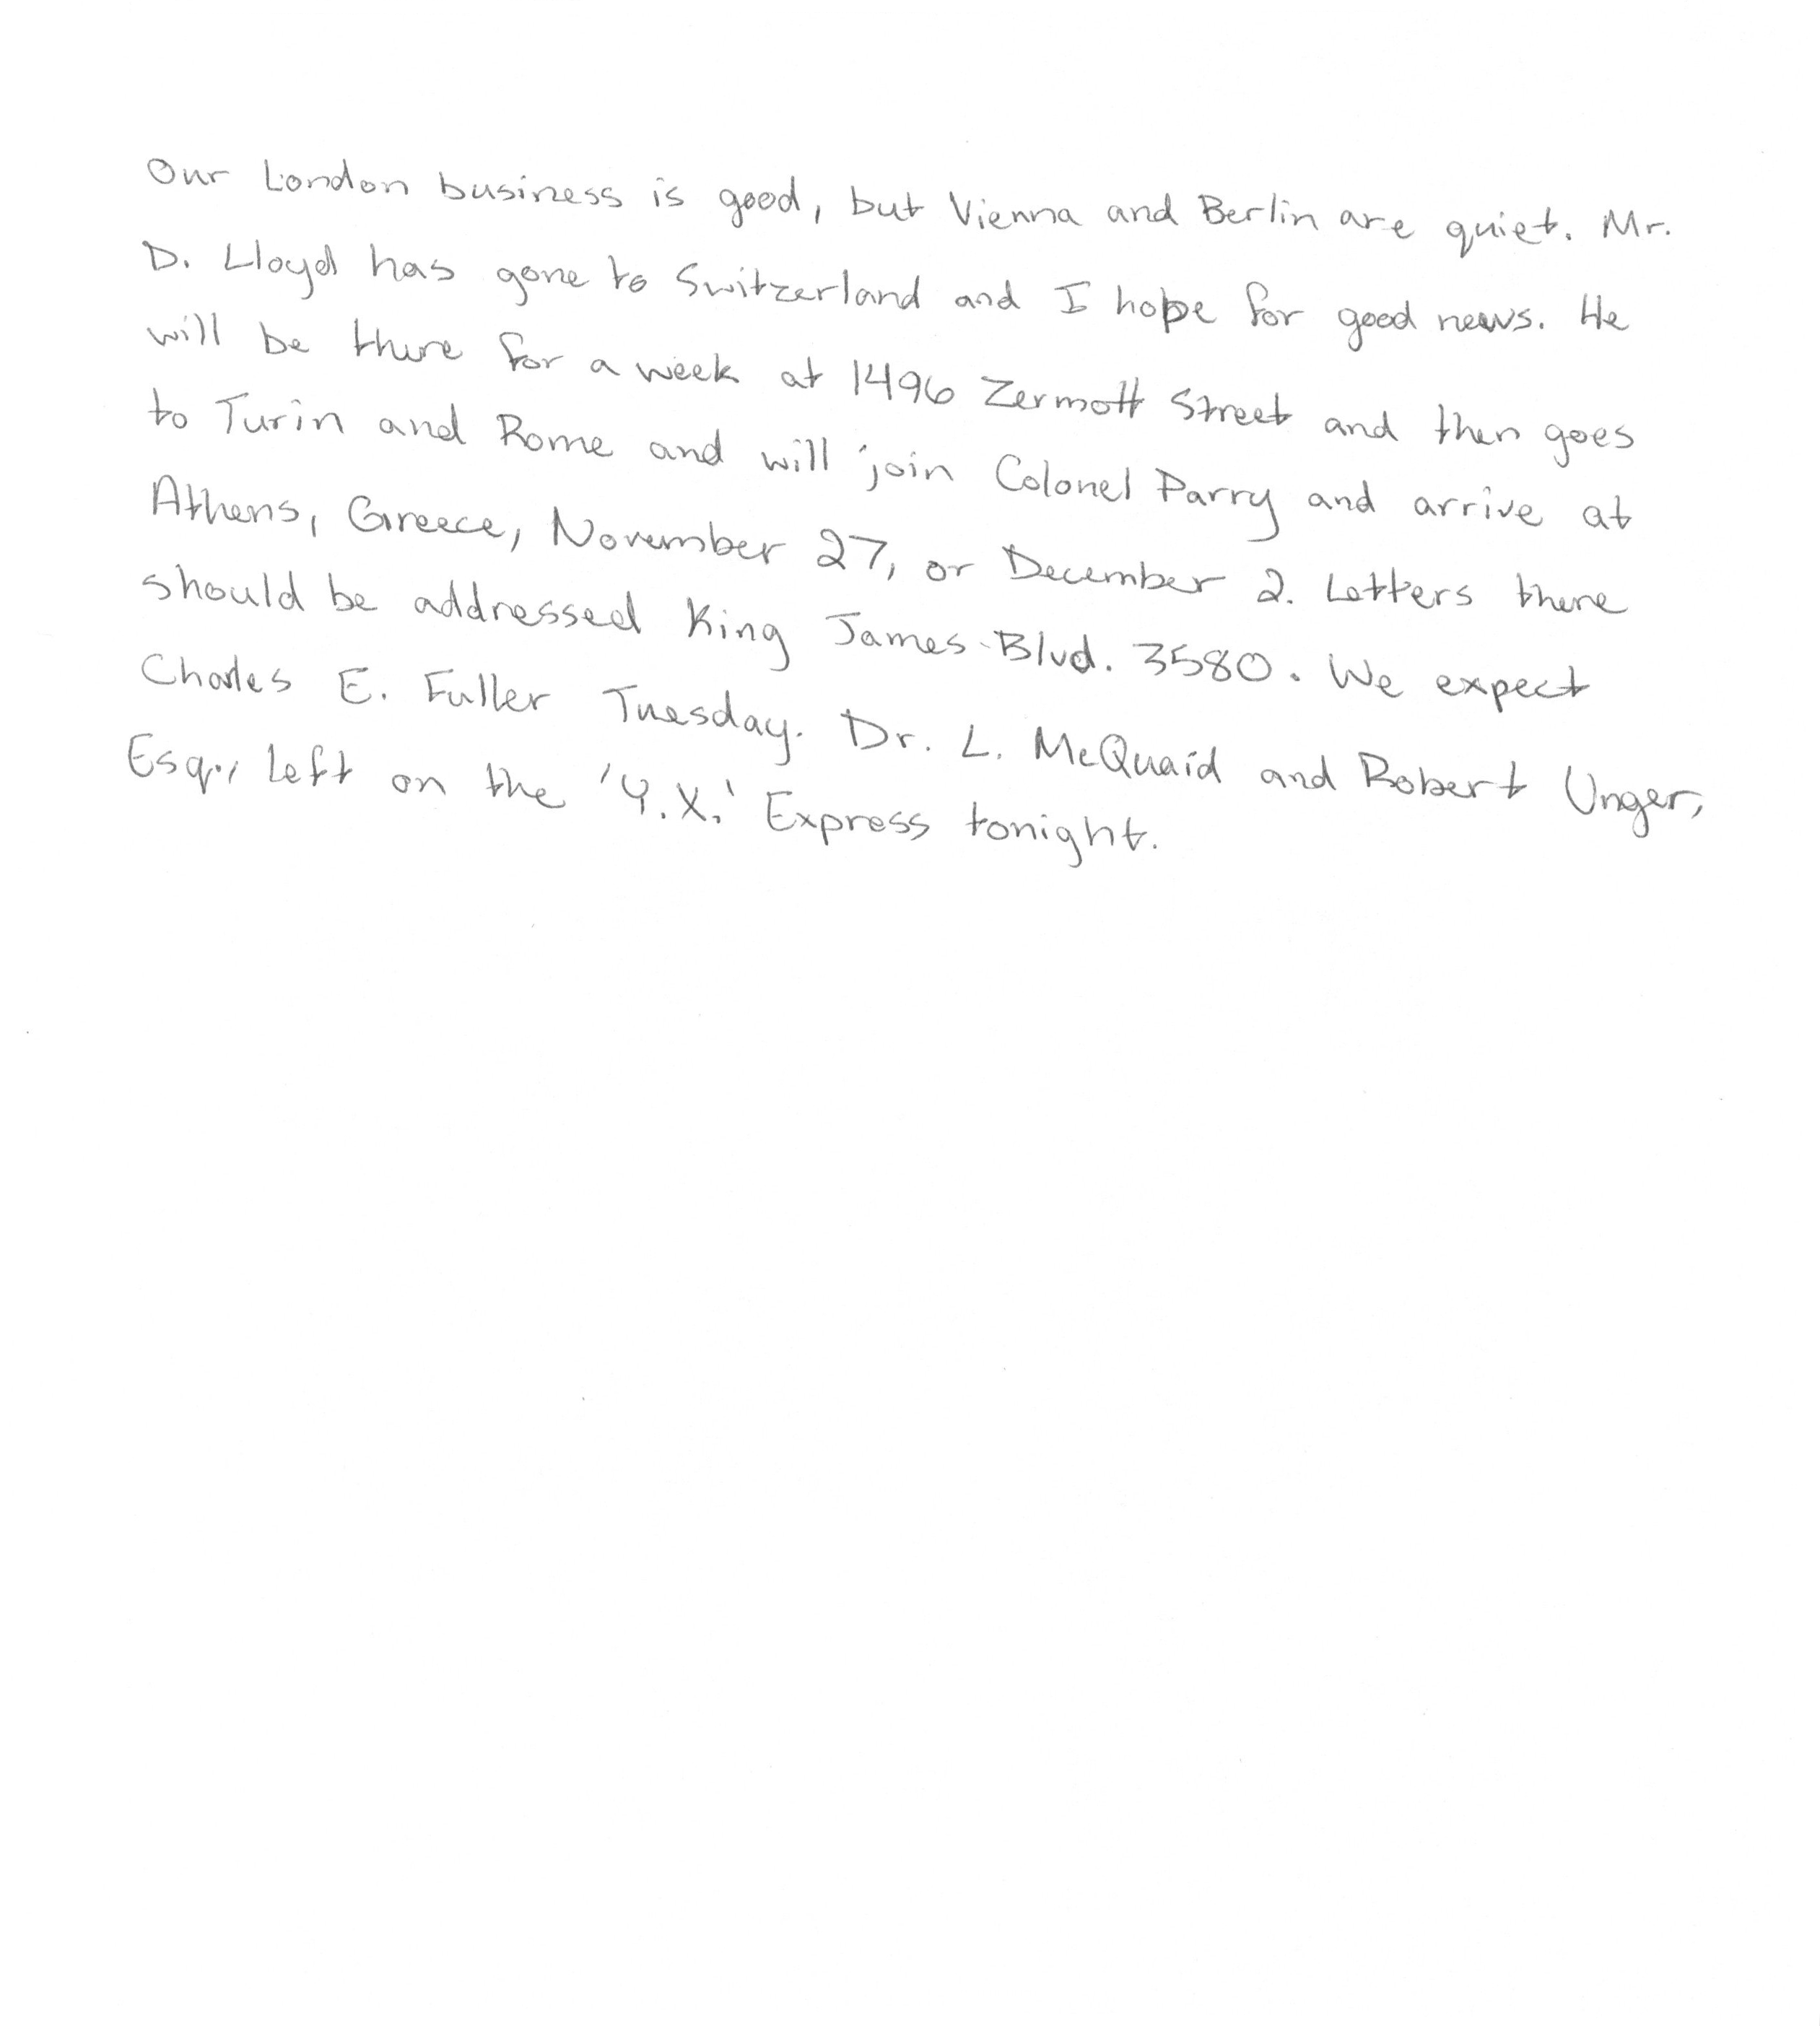 Our London business is good, but Vienna and Berlin are quiet. Mr.
D. Lloyd has gone to Switzerland and I hope for good news. He
will be there for a week at 1496 Zermott Street and then goes
to Turin and Rome and will join Colonel Parry and arrive at
Athens, Greece, November 27, or December 2. Letters there
should be addressed King James Blvd. 3580. We expect
Charles E. Fuller Tuesday. Dr. L. McQuaid and Robert Unger,
Esq., left on the 'Y.X.' Express tonight.